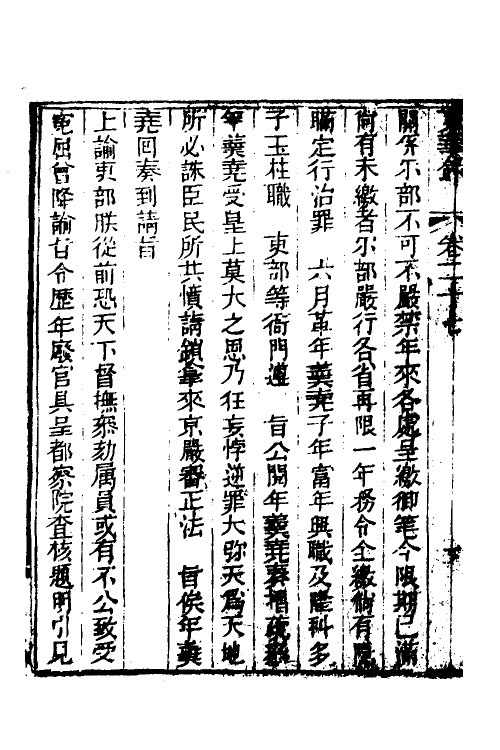 東華錄 卷二十七
關係爾部不可不嚴禁年來各處呈繳御筆今限期已滿
尚有未繳者尔部嚴行各省再限一年務令全繳倘有隱
瞞定行治罪 六月革年羹堯子年富年興職及隆科多
子玉柱職 吏部等衙門遵 旨公閱年羹堯奏摺疏
年羹堯受皇上莫大之恩乃狂妄悖逆罪大弥天為天地
所必誅臣民所共憤請鎖拿來京嚴審正法 旨俟年羹
堯回奏到請旨
上諭吏部朕從前恐天下督撫叅劾属員或有不公致受
寃屈曾降諭旨令歷年廢官具呈都察院查核題明引見